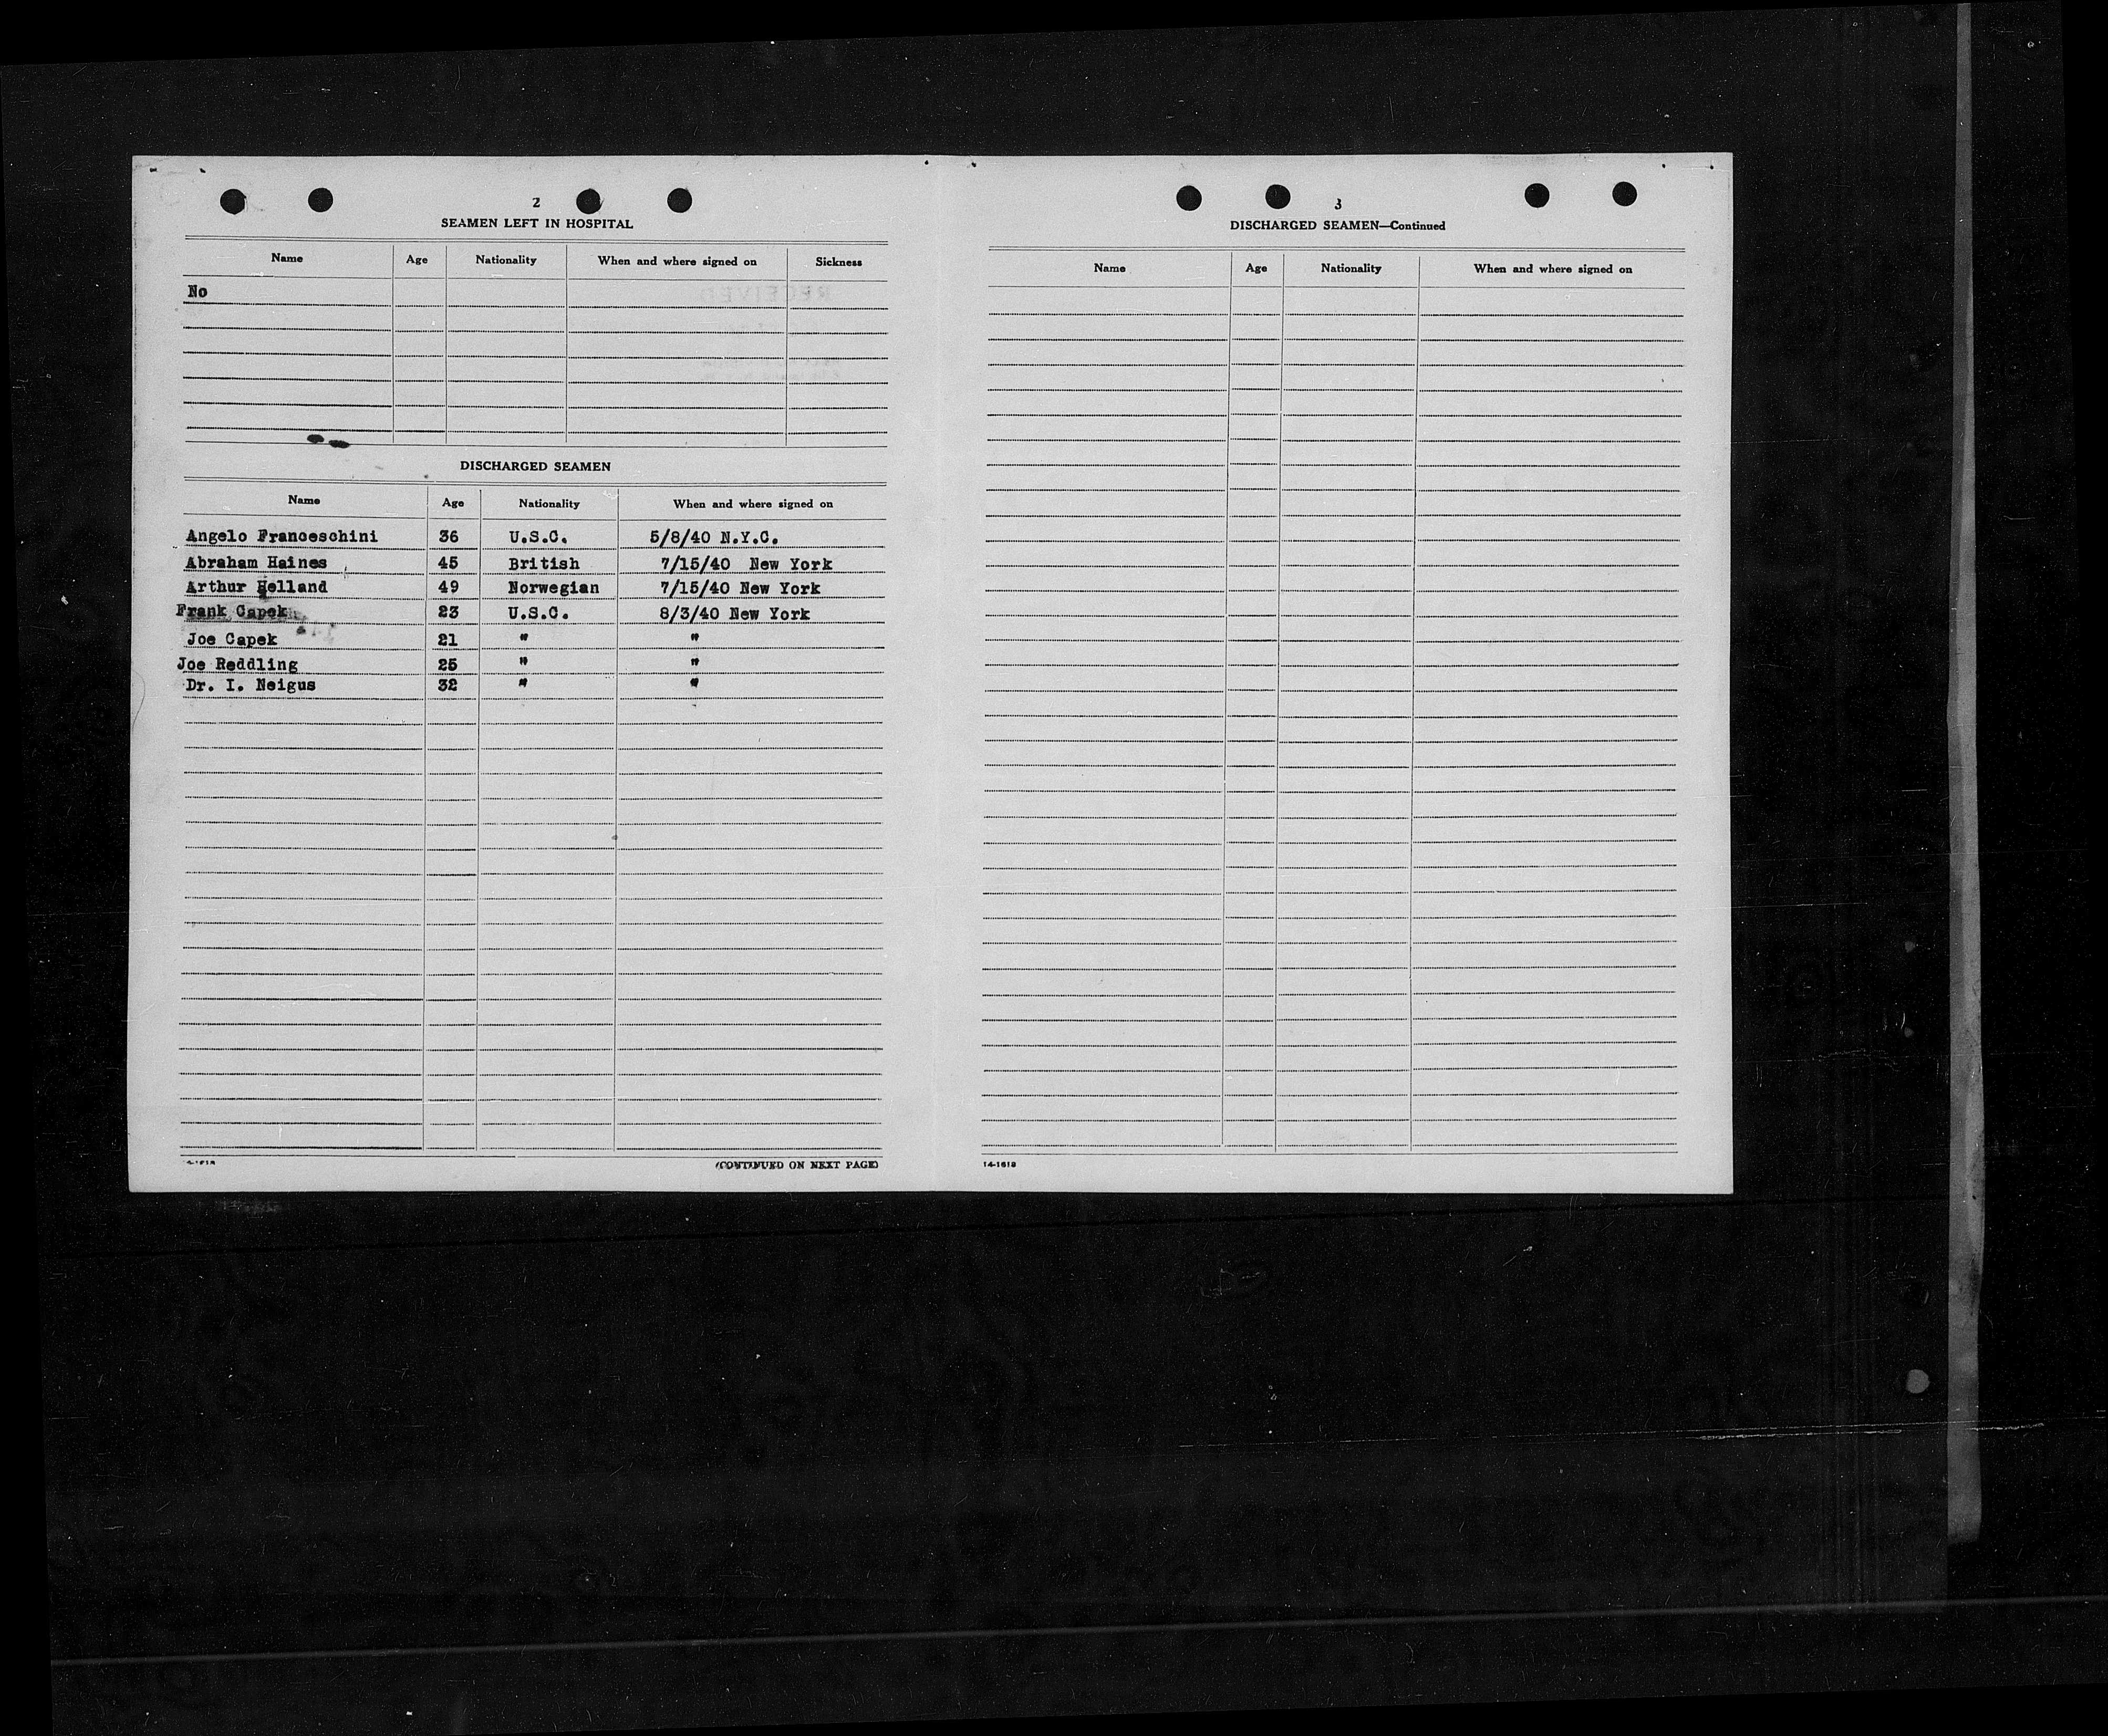 2
SEAMEN LEFT IN HOSPITAL
Name Age Nationality When and where signed on Sickness
No
RECEIVED
DISCHARGED SEAMEN
Name Age Nationality When and where signed on
Angelo Franceschini 36 U.S.C. 5/8/40 N.Y.C.
Abraham Haines 45 British 7/15/40 New York
Arthur Helland 49 Norwegian 7/15/40 New York
Frank Capek 23 U.S.C. 8/3/40 New York
Joe Capek 21 " "
Joe Reddling 25 " "
Dr. I. Neigus 32 " "
(CONTINUED ON NEXT PAGE)
3
DISCHARGED SEAMEN—Continued
Name Age Nationality When and where signed on
14-1618